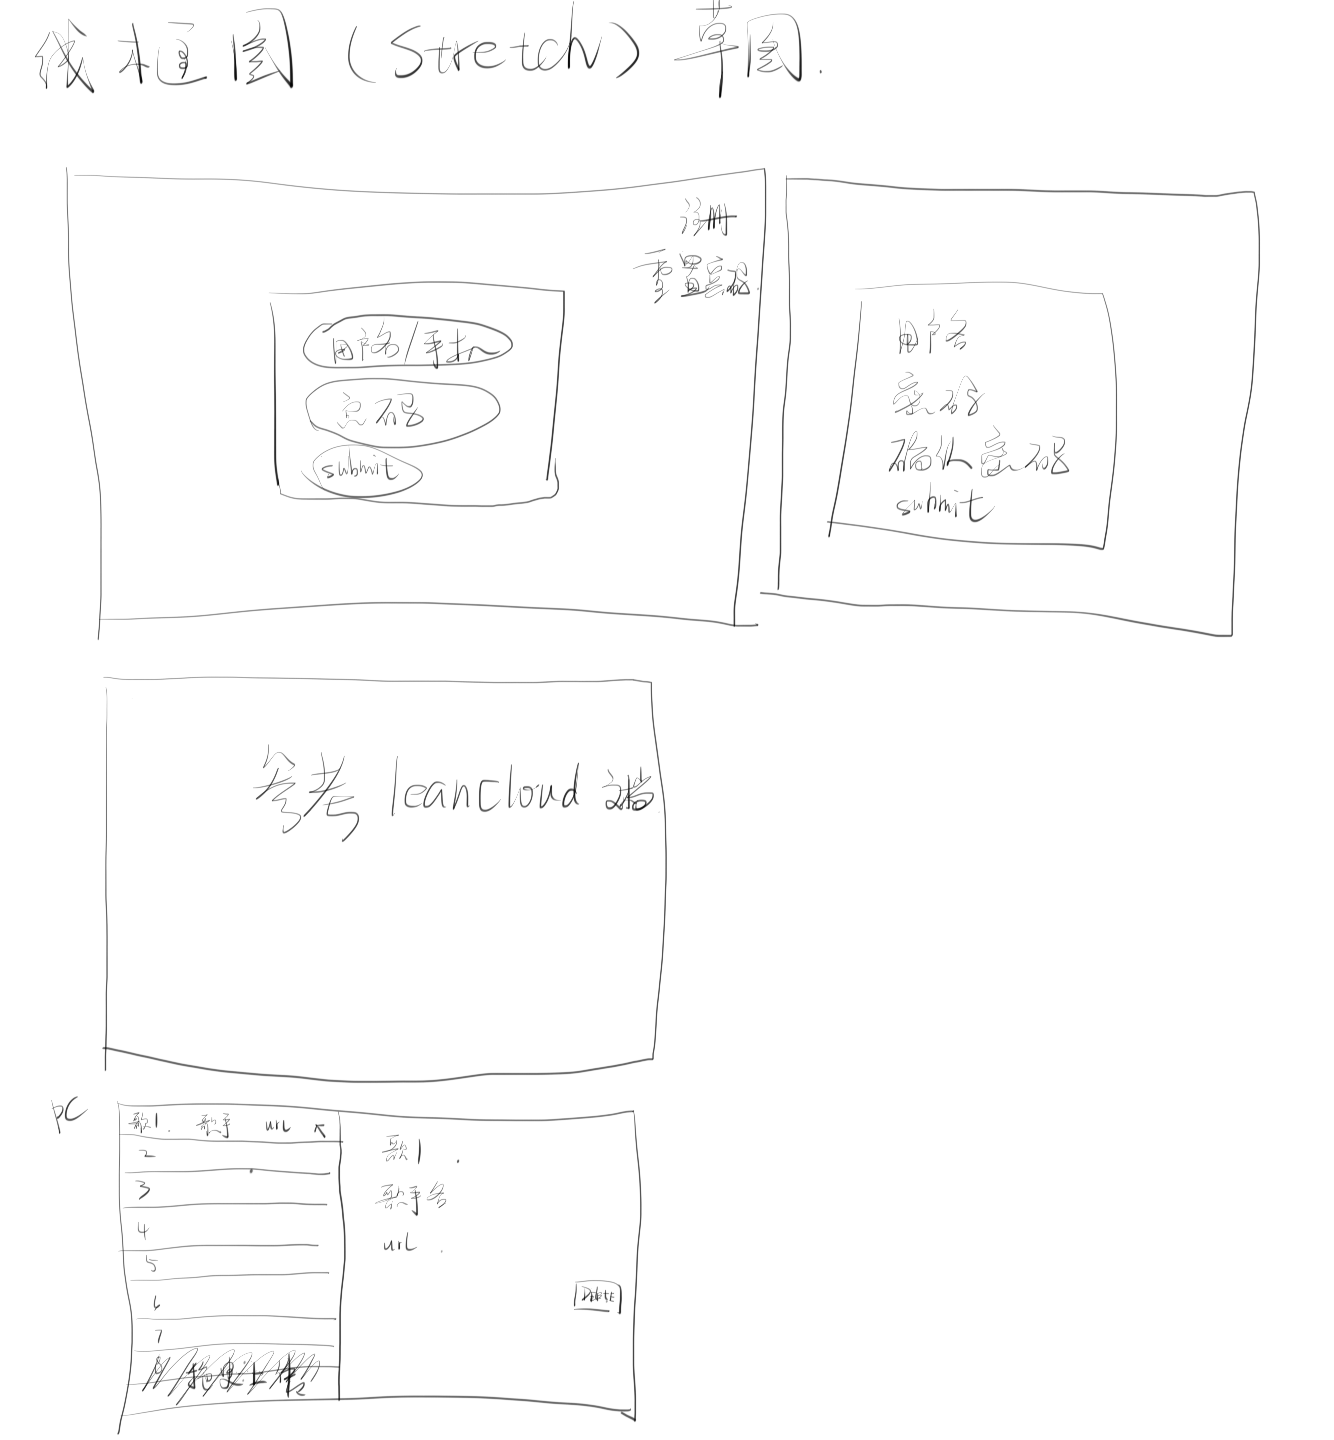 线框图 (Stretch) 草图.
注册
重置密码.
用户名/手机
密码
submit
用户名
密码
确认密码
submit
参考 leancloud 文档
PC
歌1. 歌手 url
2
3
4
5
6
7
歌1.
歌手名
url.
DELETE